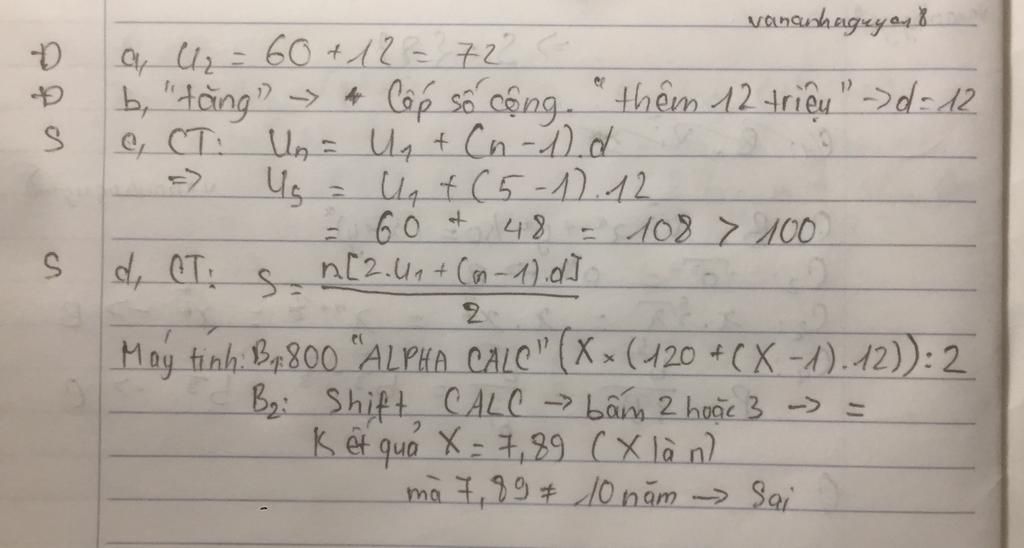 vananhaguyen8
Đ a, U₂ = 60 + 12 = 72
Đ b, "tăng" → Cấp số cộng. "thêm 12 triệu" → d = 12
S c, CT: Uₙ = U₁ + (n - 1).d
=> U₅ = U₁ + (5 - 1).12
= 60 + 48 = 108 > 100
S d, CT: S = n[2.U₁ + (n - 1).d] / 2
Máy tính: B₁: 800 "ALPHA CALC" (X × (120 + (X - 1).12)) : 2
B₂: Shift CALC → bấm 2 hoặc 3 → =
Kết quả X = 7,89 (X là n)
mà 7,89 ≠ 10 năm → Sai